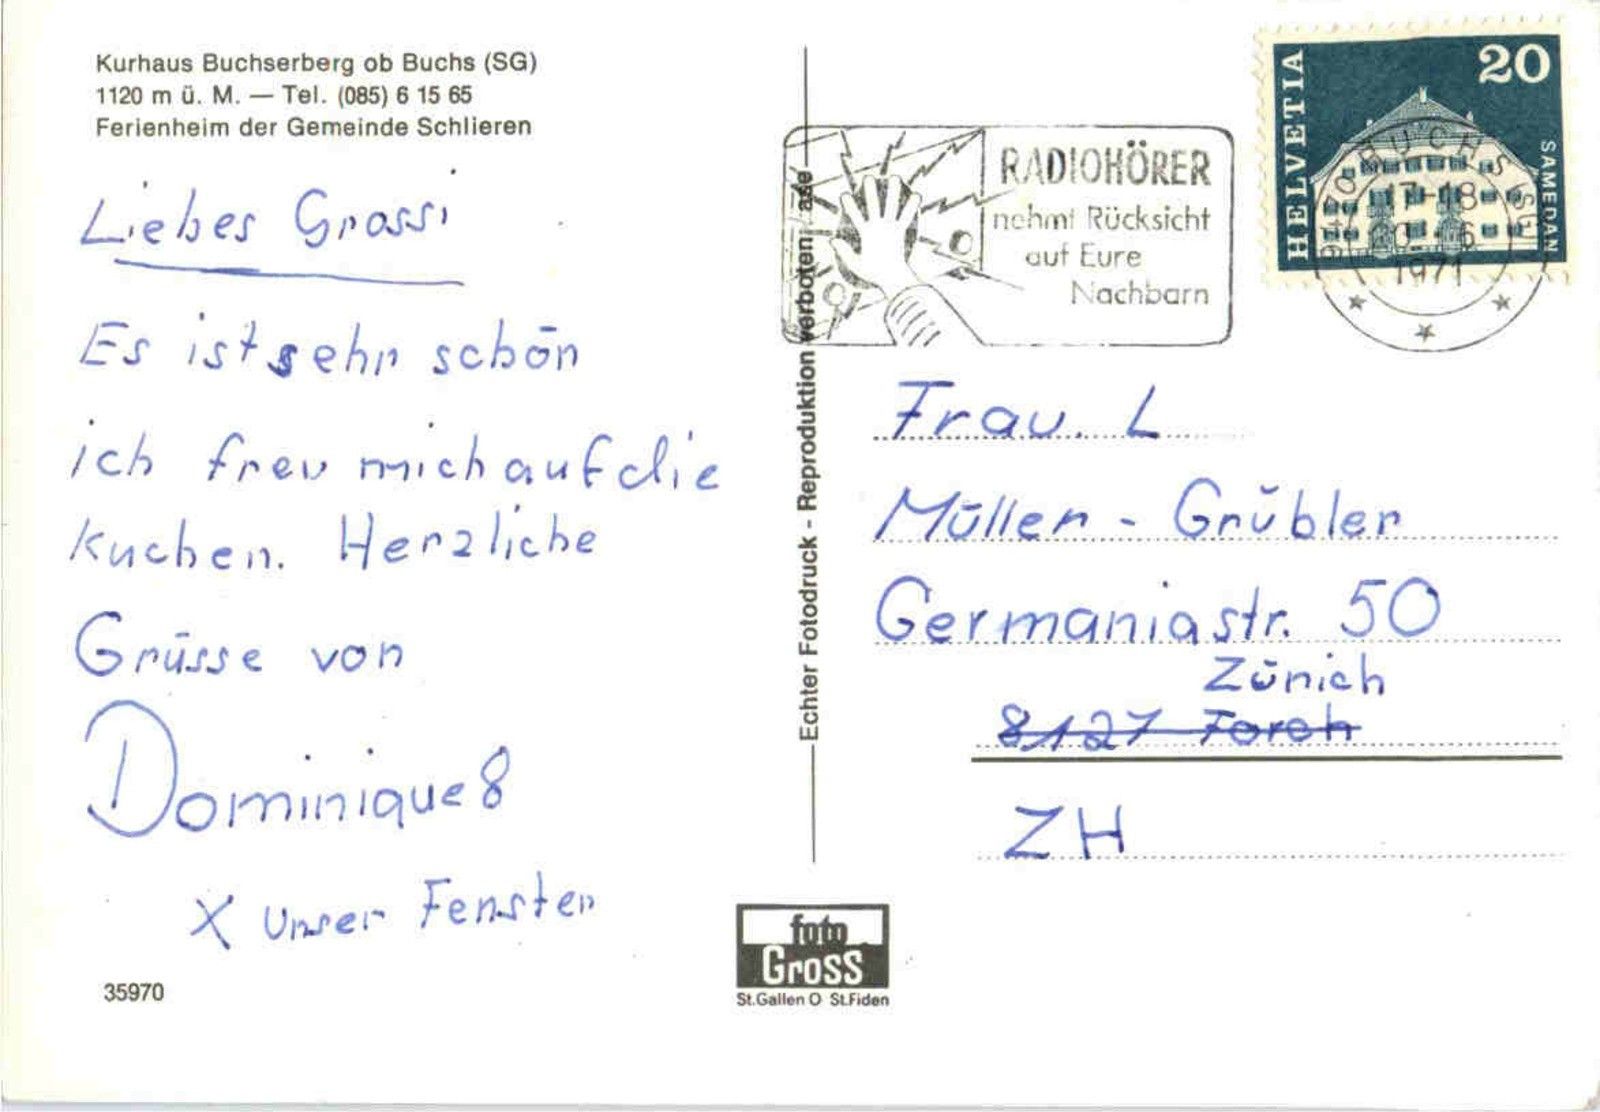 Kurhaus Buchserberg ob Buchs (SG)
1120 m ü. M. — Tel. (085) 6 15 65
Ferienheim der Gemeinde Schlieren
Liebes Grossi
Es ist sehr schön
ich freu mich auf die
Kuchen. Herzliche
Grüsse von
Dominique 8
X unser Fenster
35970
Echter Fotodruck - Reproduktion verboten
foto
Gross
St.Gallen O St.Fiden
RADIOHÖRER
nehmt Rücksicht
auf Eure
Nachbarn
HELVETIA
20
SAMEDAN
9470 BUCHS (SG)
17-18
1971
Frau. L
Müller - Grübler
Germaniastr. 50
Zürich
8127 Forch
ZH